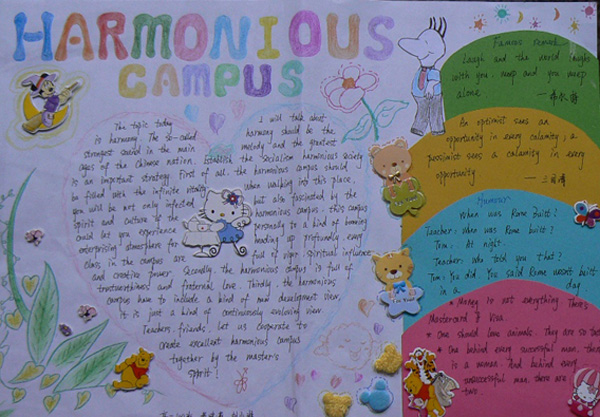 HARMONIOUS
CAMPUS
The topic today
is harmony. The so-called
strongest sound in the main
ages of the Chinese nation. Establish the socialism harmonious society
is an important strategy. First of all, the harmonious campus should
be filled with the infinite vitality
you will be not only infected
spirit and culture of the
could let you experience
enterprising atmosphere for
class, in the campus are
and creative power. Secondly the harmonious campus is full of
trustworthiness and fraternal love. Thirdly, the harmonious
campus have to include a kind of new development view,
it is just a kind of continuously evolving view.
Teachers, friends, let us cooperate to
create excellent harmonious campus
together by the master's
spirit!
I will talk about
harmony should be the
melody and the greatest
when walking into this place,
but also fascinated by the
harmonious campus, this campus
personally to a kind of
heading up profoundly, every
full of vigor, spiritual influence
Famous remark
Laugh and the world laughs
with you, weep and you weep
alone
An optimist sees an
opportunity in every calamity; a
pessimist sees a calamity in every
opportunity
Humour
When was Rome Built?
Teacher: When was Rome built?
Tom: At night.
Teacher: Who told you that?
Tom: You did. You said Rome wasn't built
in a day
* Money is not everything. There's
Mastercard & Visa
* One should love animals. They are so
* One behind every successful man, there
is a woman. And behind every
unsuccessful man, there are
two.